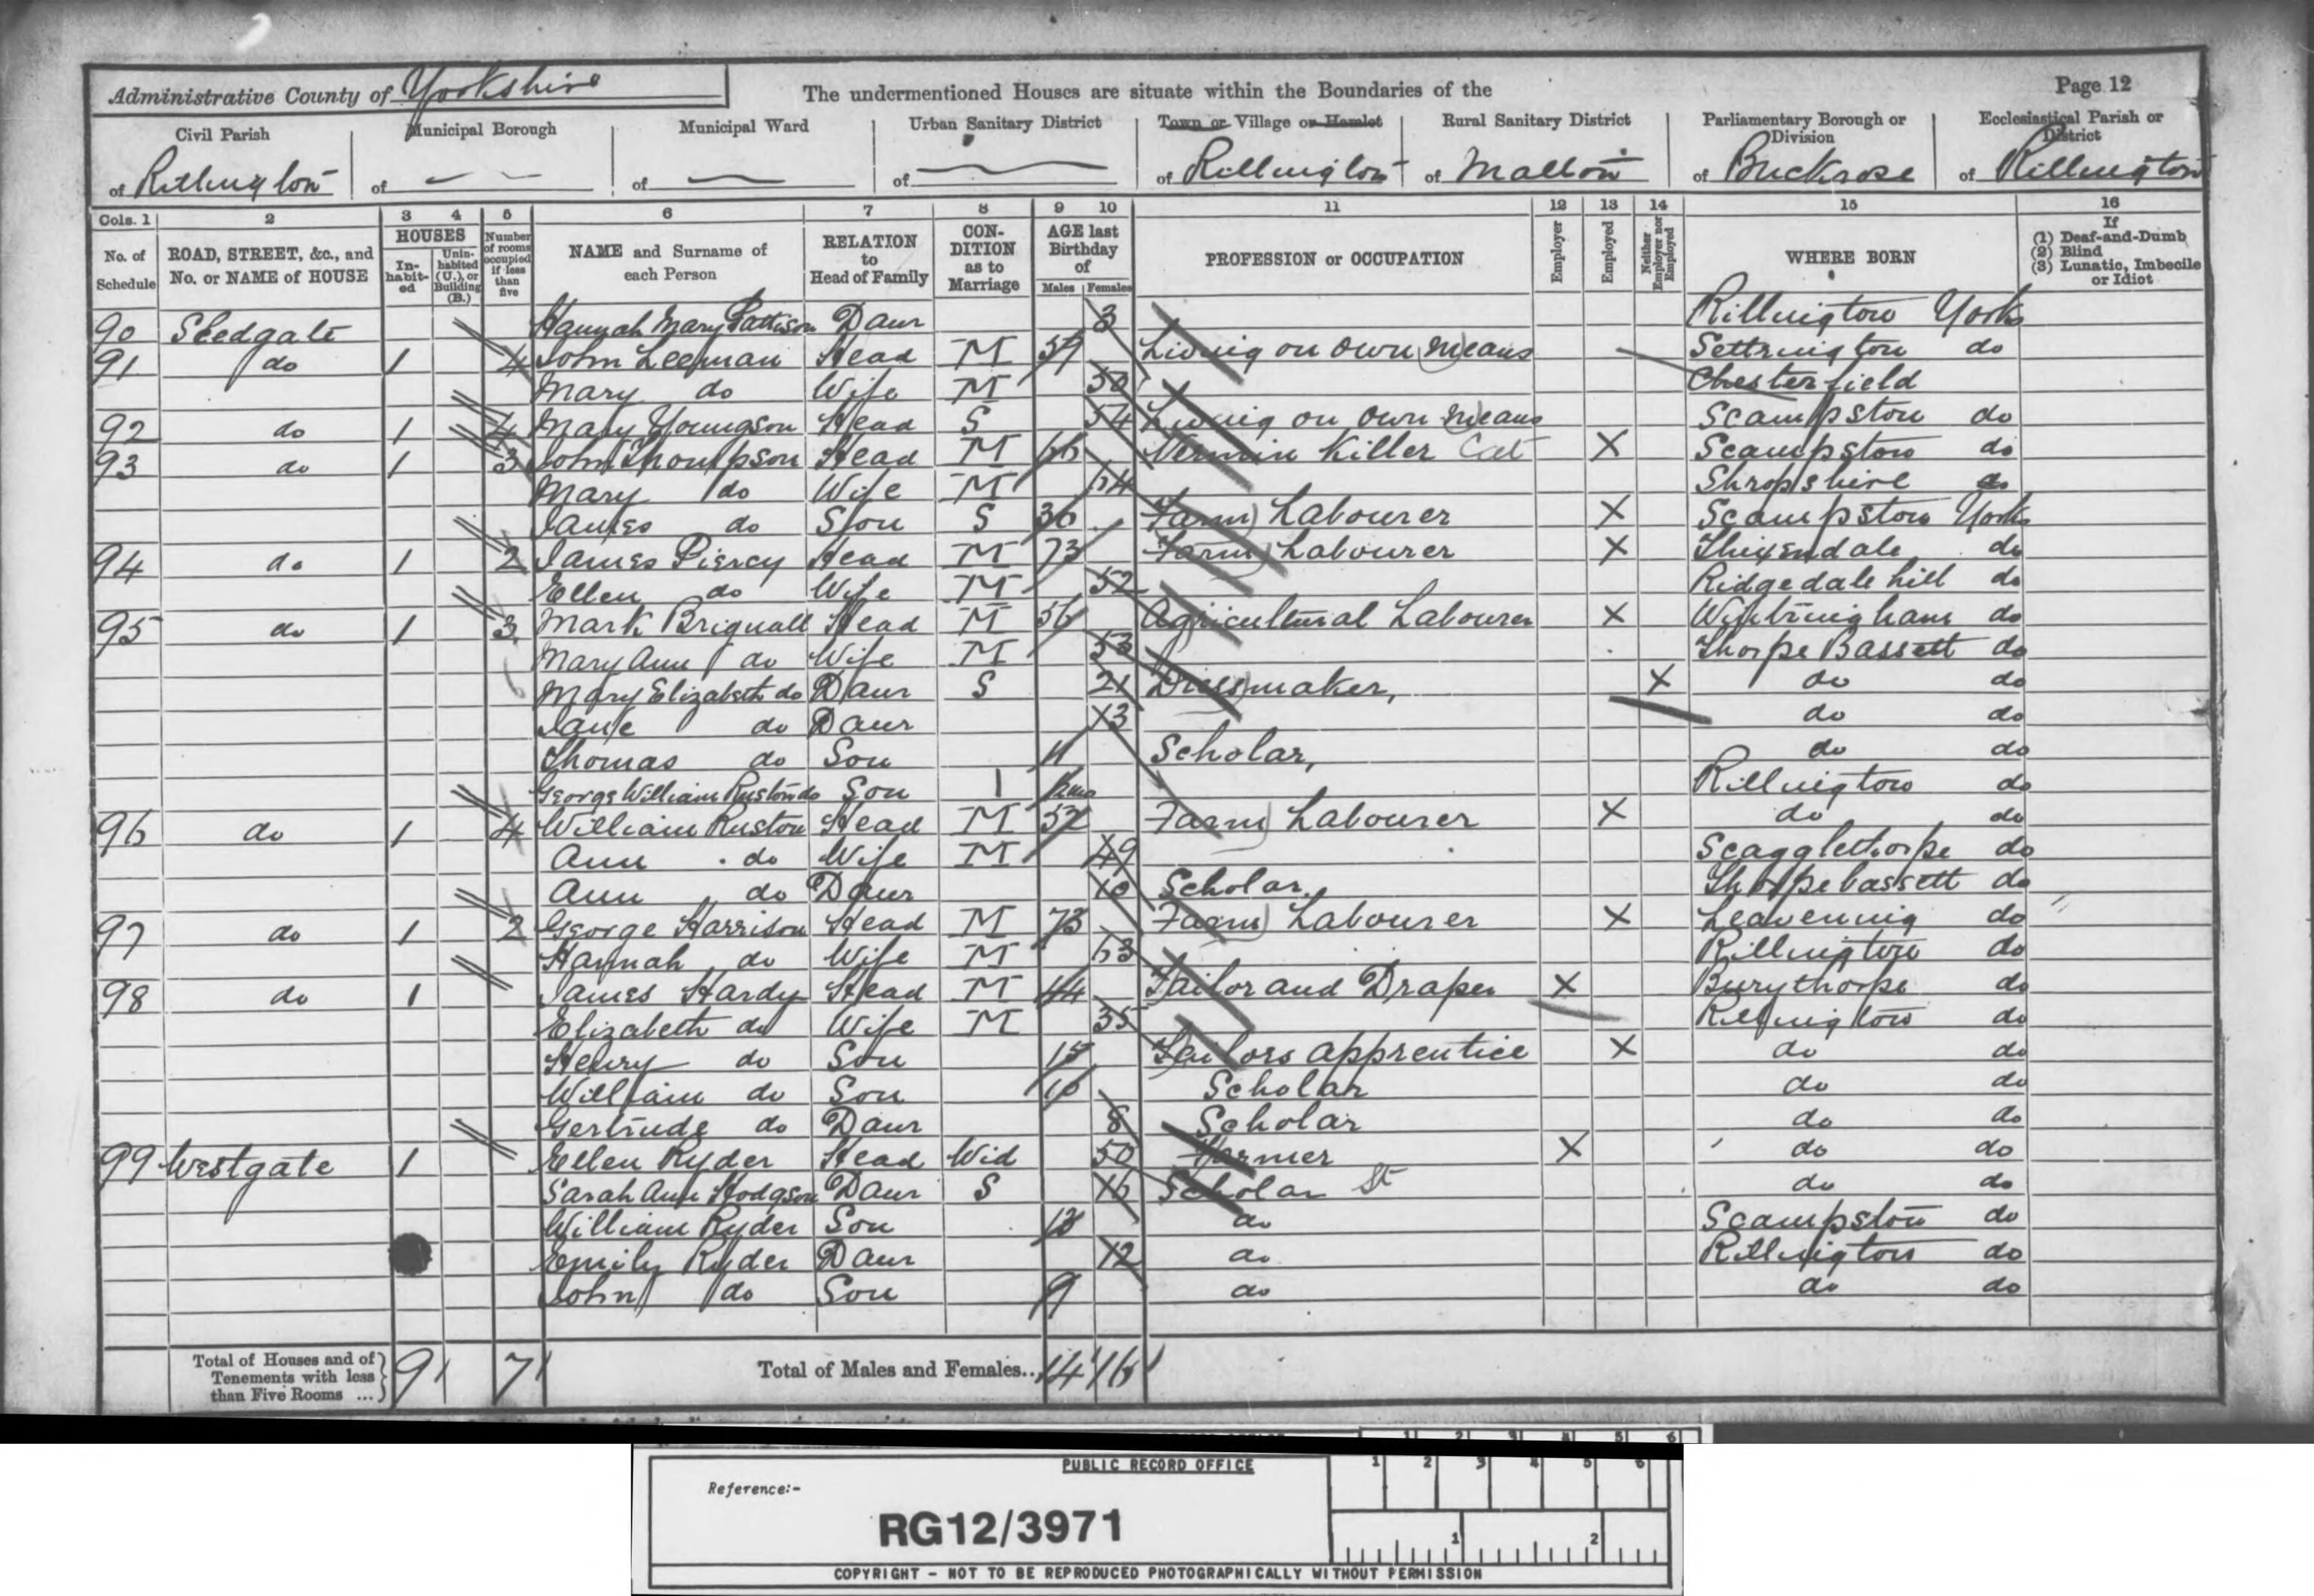 Administrative County of Yorkshire The undermentioned Houses are situate within the Boundaries of the Page 12
Civil Parish Municipal Borough Municipal Ward Urban Sanitary District Town or Village or Hamlet Rural Sanitary District Parliamentary Borough or Division Ecclesiastical Parish or District
of Rillington of — of — of — of Rillington of Malton of Buckrose of Rillington
Cols. 1 2 3 4 5 6 7 8 9 10 11 12 13 14 15 16
No. of Schedule ROAD, STREET, &c., and No. or NAME of HOUSE HOUSES Inhabited Uninhabited (U.), or Building (B.) Number of rooms occupied if less than five NAME and Surname of each Person RELATION to Head of Family CONDITION as to Marriage AGE last Birthday of Males Females PROFESSION or OCCUPATION Employer Employed Neither Employer nor Employed WHERE BORN If (1) Deaf-and-Dumb (2) Blind (3) Lunatic, Imbecile or Idiot
90 Sledgate Hannah Mary Pattison Daur 3 Rillington York
91 do 1 4 John Leeman Head M 59 Living on own means Settrington do
Mary do Wife M 50 Chesterfield
92 do 1 4 Mary Youngson Head S 54 Living on own means Scampston do
93 do 1 3 John Thompson Head M 66 Vermin Killer Cat X Scampston do
Mary do Wife M 64 Shropshire
James do Son S 36 Farm Labourer X Scampston York
94 do 1 2 James Piercy Head M 73 Farm Labourer X Thixendale do
Ellen do Wife M 52 Ridgedale hill do
95 do 1 3 Mark Brignall Head M 56 Agricultural Labourer X Wintringham do
Mary Ann do Wife M 53 Thorpe Bassett do
Mary Elizabeth do Daur S 21 Dressmaker, X do do
Jane do Daur 13 do do
Thomas do Son 11 Scholar, do do
George William Ruston do Son Rillington do
96 do 1 4 William Ruston Head M 52 Farm Labourer X do do
Ann do Wife M 49 Scagglethorpe do
Ann do Daur 10 Scholar, Thorpebassett do
97 do 1 2 George Harrison Head M 73 Farm Labourer X Leavening do
Hannah do Wife M 63 Rillington do
98 do 1 James Hardy Head M 44 Tailor and Draper X Burythorpe do
Elizabeth do Wife M 35 Rillington do
Henry do Son 15 Tailors apprentice X do do
William do Son 10 Scholar do do
Gertrude do Daur 8 Scholar do do
99 Westgate 1 Ellen Ryder Head Wid 50 Farmer X do do
Sarah Ann Hodgson Daur S 16 Scholar St do do
William Ryder Son 13 do Scampston do
Emily Ryder Daur 12 do Rillington do
John do Son 9 do do do
Total of Houses and of Tenements with less than Five Rooms ... 9 7 Total of Males and Females.. 14 16
PUBLIC RECORD OFFICE 1 2 3 4 5 6
Reference:-
RG12/3971
1 2
COPYRIGHT - NOT TO BE REPRODUCED PHOTOGRAPHICALLY WITHOUT PERMISSION